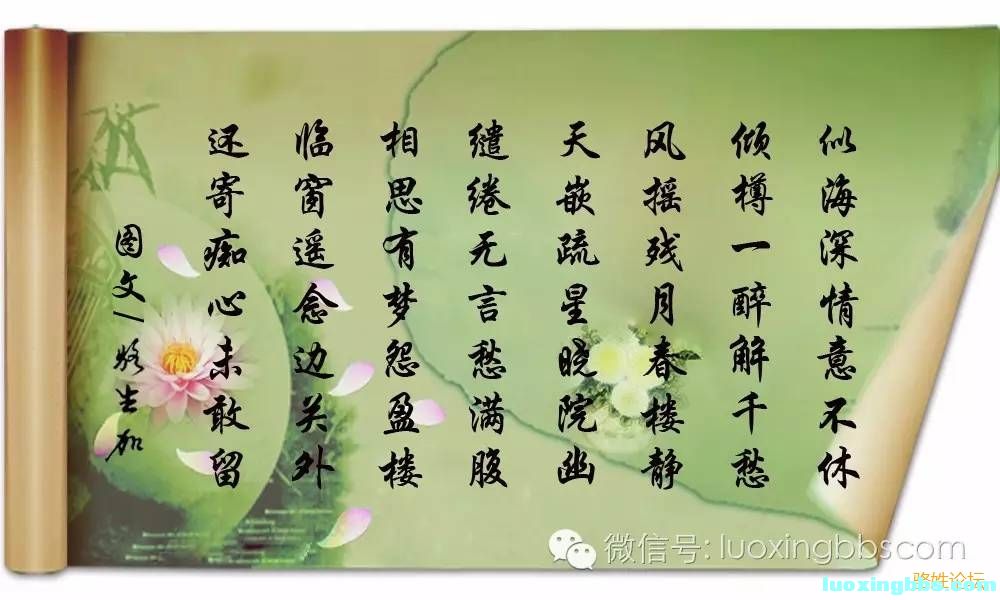 似海深情意不休
倾樽一醉解千愁
风摇残月春楼静
天嵌疏星晓院幽
缱绻无言愁满腹
相思有梦怨盈楼
临窗遥念边关外
还寄痴心未敢留
图文/骆生加
微信号: luoxingbbscom
骆姓论坛
luoxingbbs.com